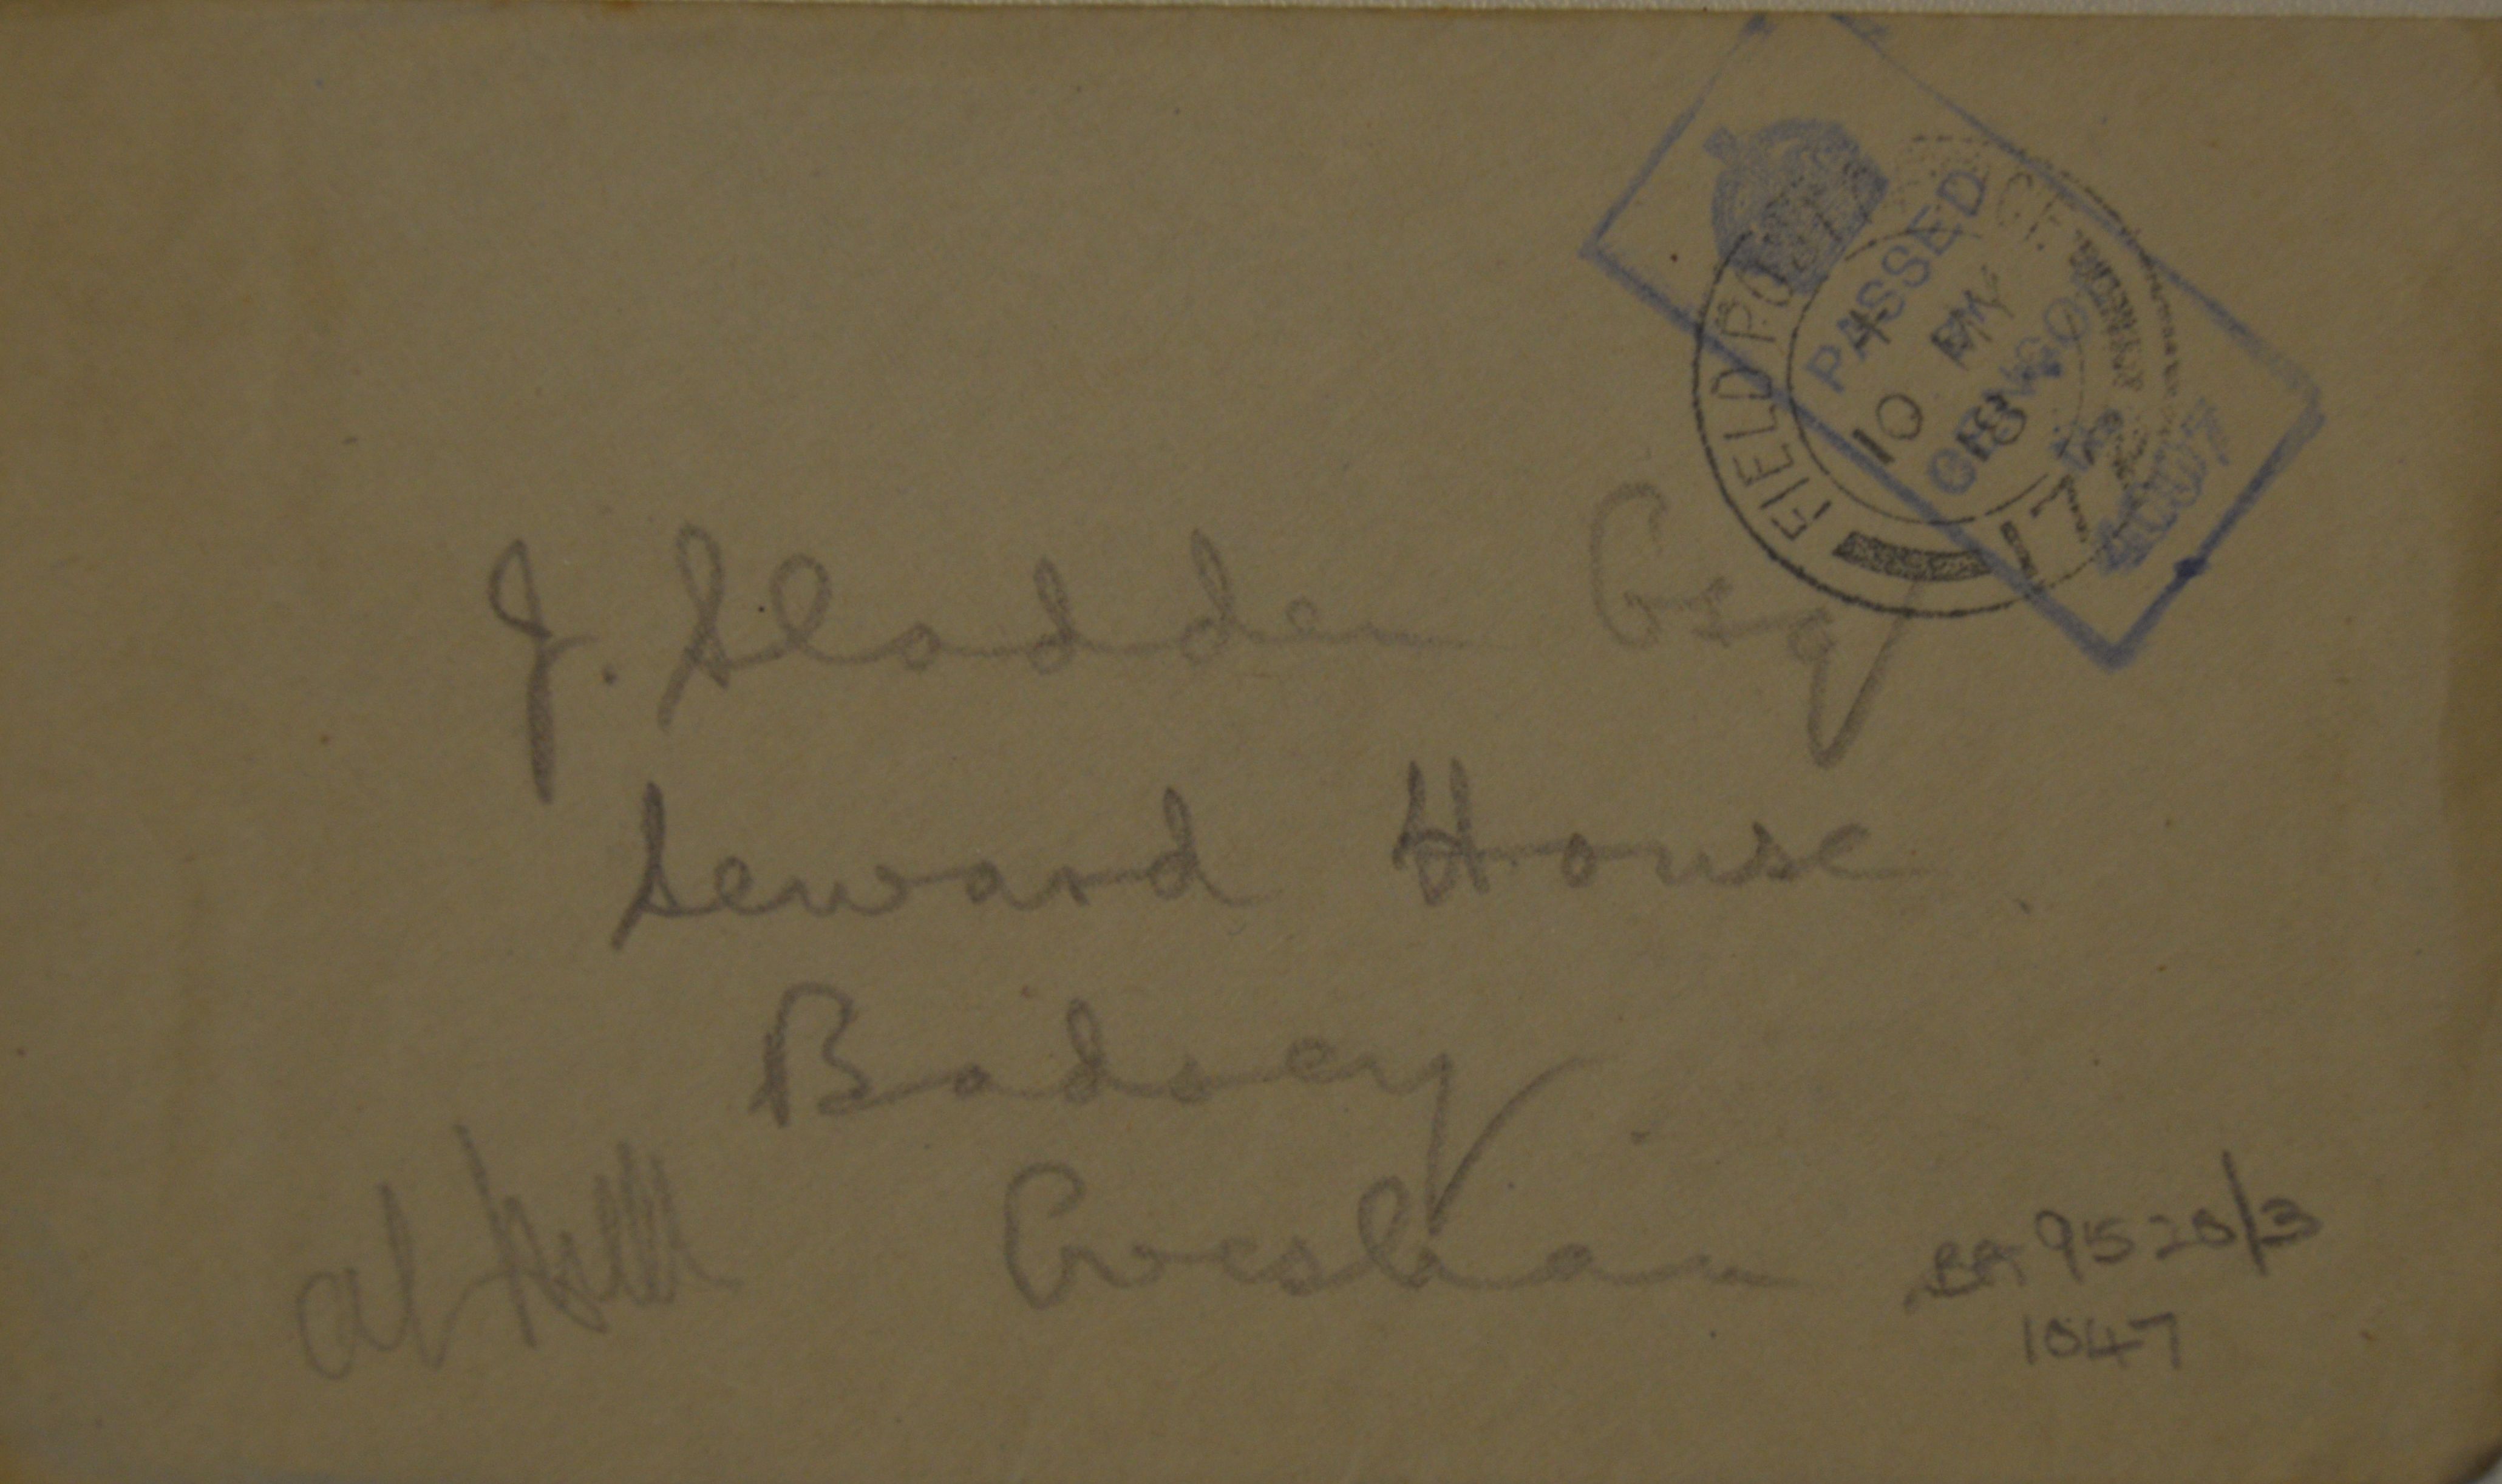 FIELD POST OFFICE
10 MY
18
PASSED
CENSOR
J. Sladden Esq
Seward House
Badsey
Evesham
BA 9520/3
1047